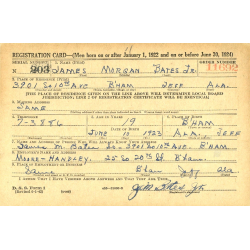 REGISTRATION CARD—(Men born on or after January 1, 1922 and on or before June 30, 1924)
SERIAL NUMBER 1. NAME (Print) ORDER NUMBER
303 JAMES MORGAN BATES JR.
2. PLACE OF RESIDENCE (Print)
3901 50 10th AVE B'HAM JEFF ALA.
[THE PLACE OF RESIDENCE GIVEN ON THE LINE ABOVE WILL DETERMINE LOCAL BOARD
JURISDICTION; LINE 2 OF REGISTRATION CERTIFICATE WILL BE IDENTICAL]
3. MAILING ADDRESS
SAME
4. TELEPHONE 5. AGE IN YEARS 6. PLACE OF BIRTH
7-3886 19 B'HAM
DATE OF BIRTH
JUNE 10 1923 ALA. JEFF
7. NAME AND ADDRESS OF PERSON WHO WILL ALWAYS KNOW YOUR ADDRESS
James M. Bates Sr. 3901 50 10th AVE. B'HAM
8. EMPLOYER'S NAME AND ADDRESS
MOORE-HANDLEY 20th St. B'ham
9. PLACE OF EMPLOYMENT OR BUSINESS
Same B'ham Ala
I AFFIRM THAT I HAVE VERIFIED ABOVE ANSWERS AND THAT THEY ARE TRUE.
D. S. S. Form 1